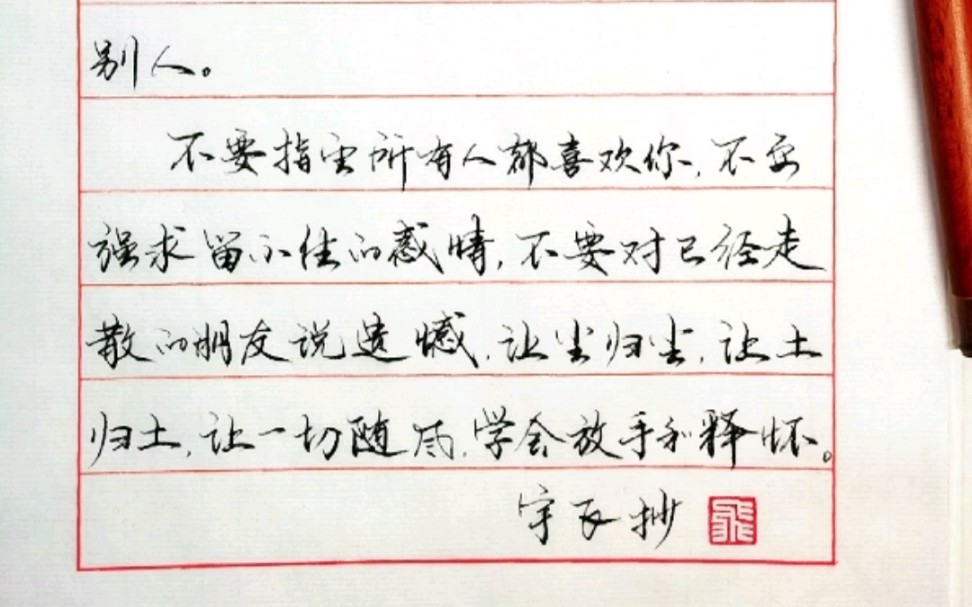 别人。
不要指望所有人都喜欢你，不要
强求留不住的感情，不要对已经走
散的朋友说遗憾，让尘归尘，让土
归土，让一切随风，学会放手和释怀。
宇辰抄